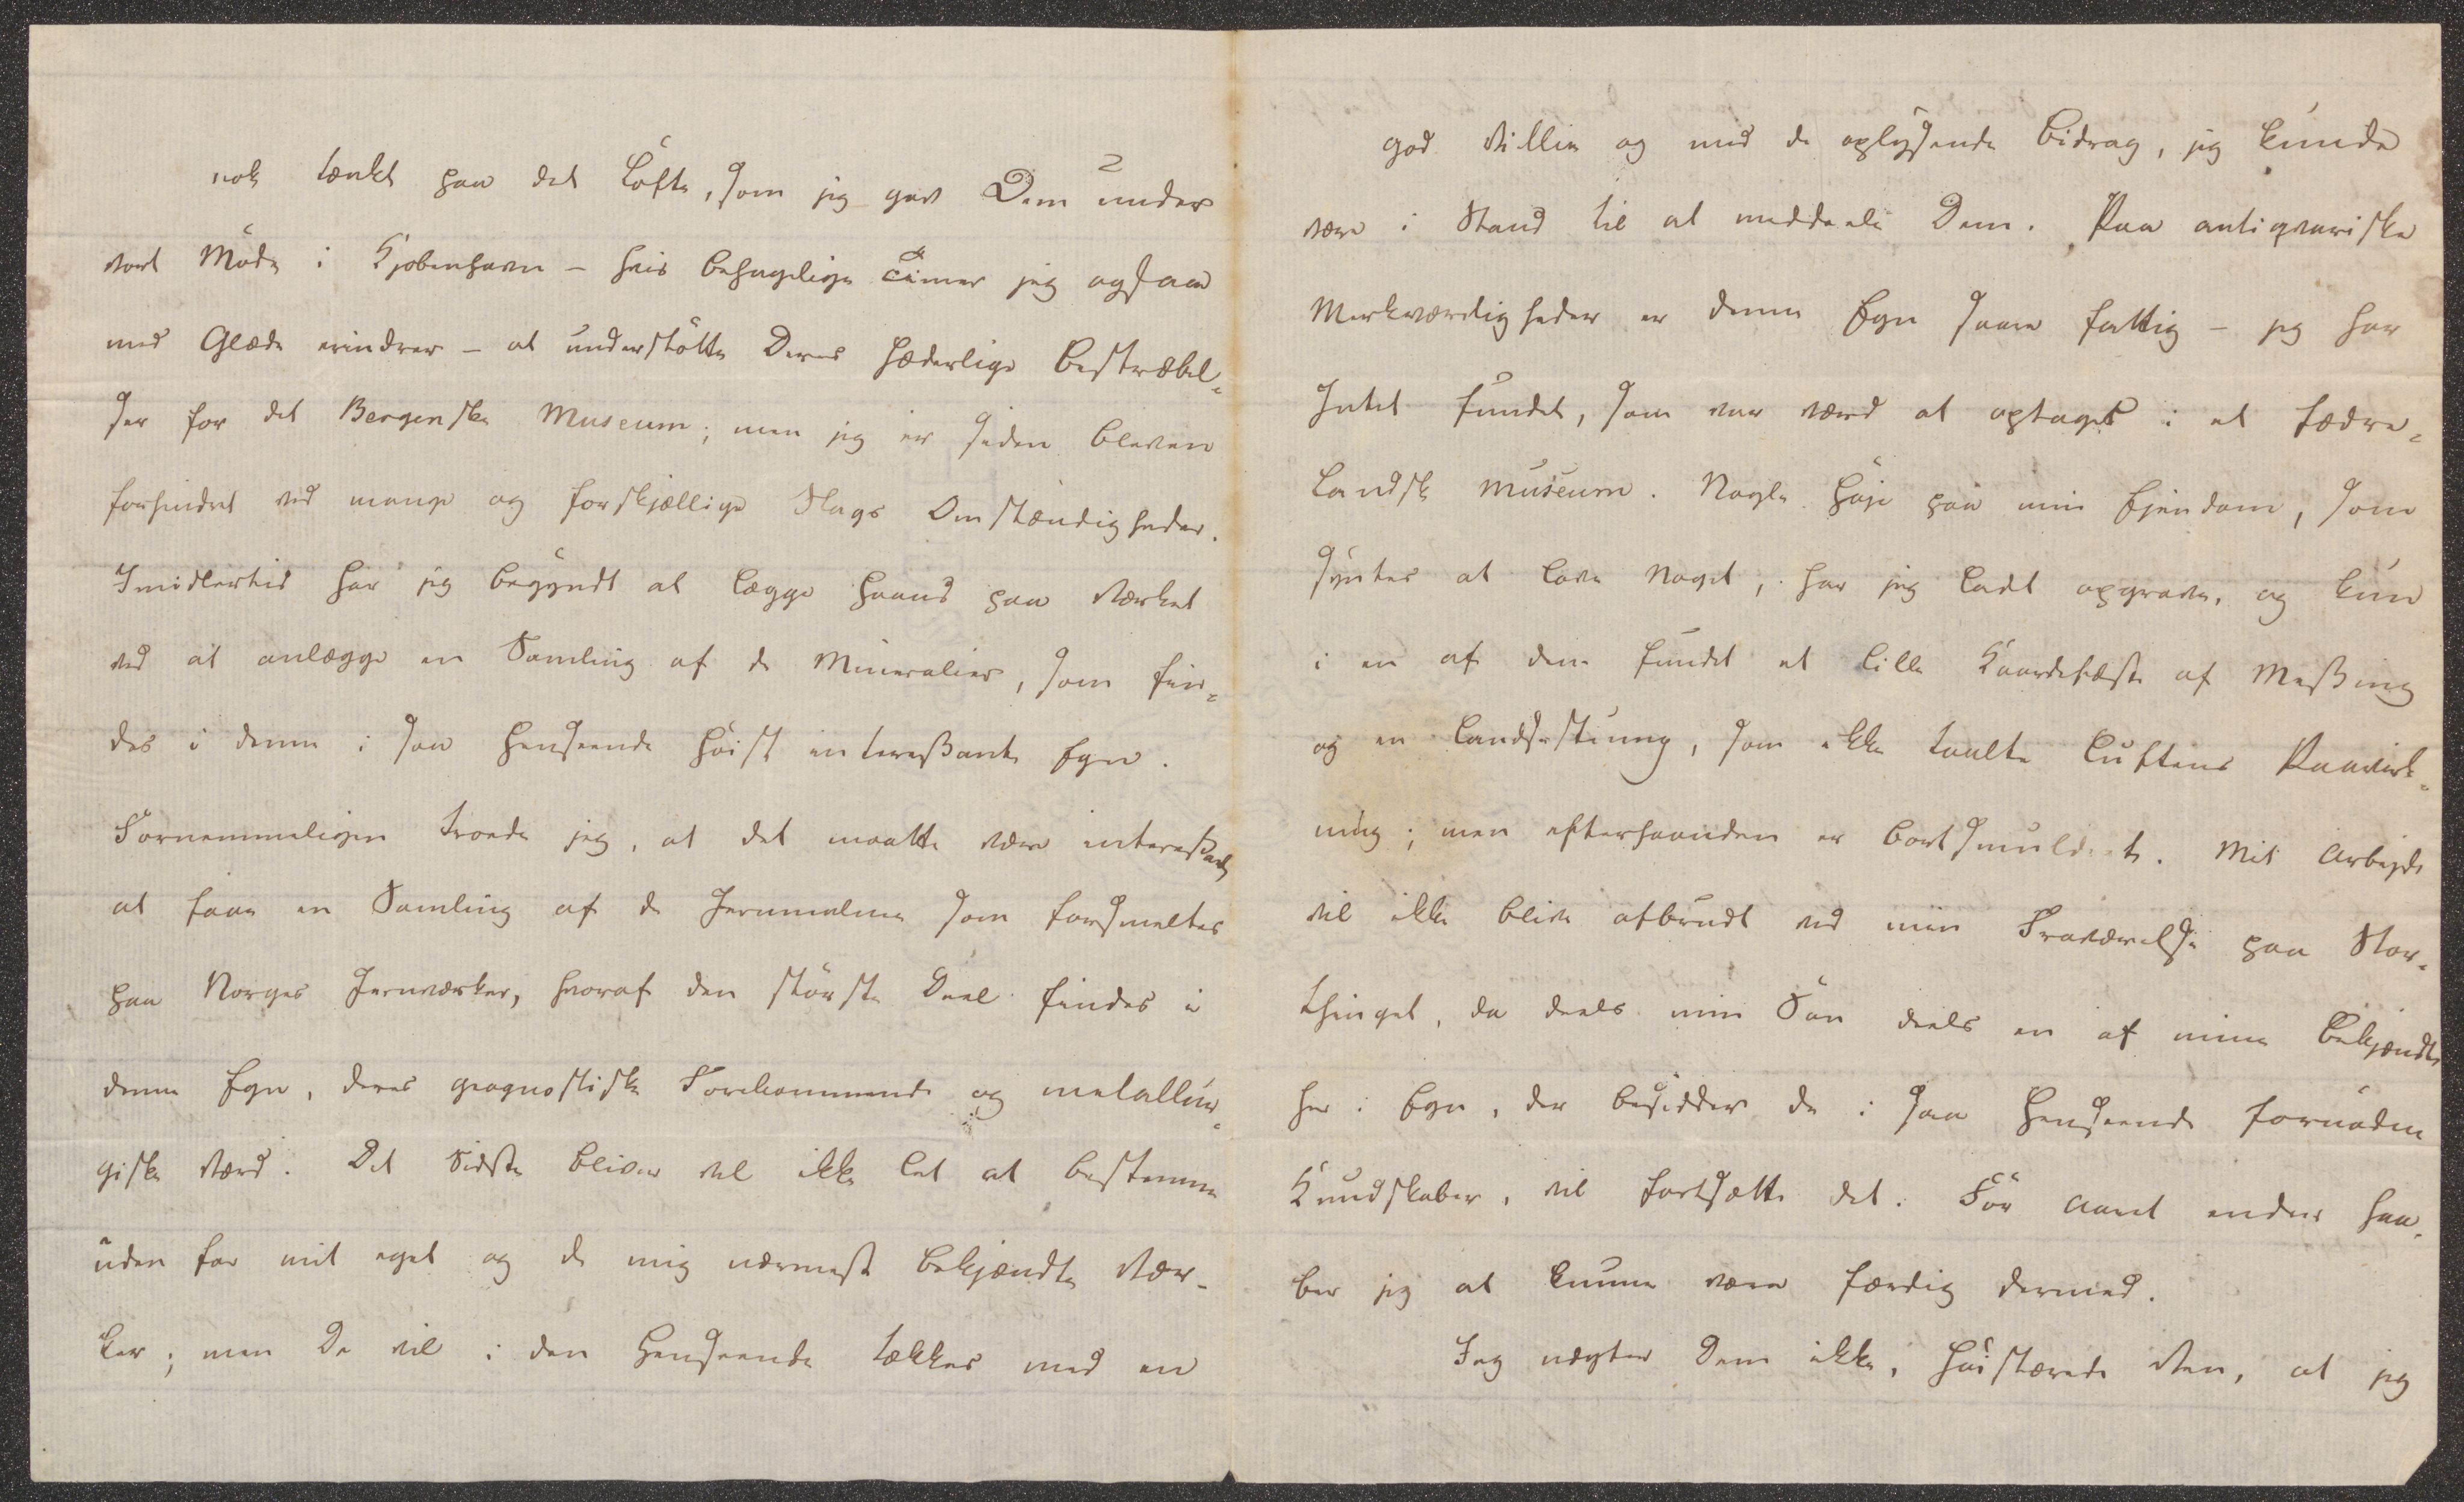 nok tænkt paa det Löfte, som jeg gav Dem under
vort Möde i Kjøbenhavn – hvis behagelige Timer jeg ogsaa
med Glæde erindrer – at understötte Deres hæderlige Bestræbel-
ser for det Bergenske Museum; men jeg er siden bleven
forhindret ved mange og forskjællige Slags Omstændigheder.
Imidlertid har jeg begyndt at lægge Haand paa Værket
ved at anlægge en Samling af de Mineralier, som fin-
des i denne i saa Henseende höist interessante Egn.
Fornemmeligen troede jeg, at det maatte være interessant
at faae en Samling af de Jernmalme som forsmeltes
paa Norges Jernværker, hvoraf den störste Deel findes i
denne Egn, deres geognostiske Forekommende og metallur-
giske Værd. Det Sidste bliver vel ikke let at bestemme
uden for mit eget og de mig nærmest bekjændte Vær-
ker; men De vil i den Henseende tækkes med en
god Villie og med de oplysende Bidrag, jeg kunde
være i Stand til at meddeele Dem. Paa antiqvariske
Merkværdigheder er denne Egn saare fattig – jeg har
Intet fundet, som var værd at optages i et fædre-
landsk Museum. Nogle Höje paa min Ejendom, som
syntes at love Noget, har jeg ladt opgrave, og kun
i en af dem fundet et lille Kaardefæste af Messing
og en Landsestump, som ikke taalte Luftens Paavirk-
ning; men efterhaanden er bortsmuldret. Mit Arbejde
vil ikke blive afbrudt ved min Fraværelse paa Stor-
thinget, da deels min Sön deels en af mine Bekjændte
her i Egn, der besidder de i saa Henseende fornödne
Kundskaber, vil fortsætte det. För Aaret ender haa-
ber jeg at kunne være færdig dermed.
Jeg nægter Dem ikke, höistærede Ven, at jeg